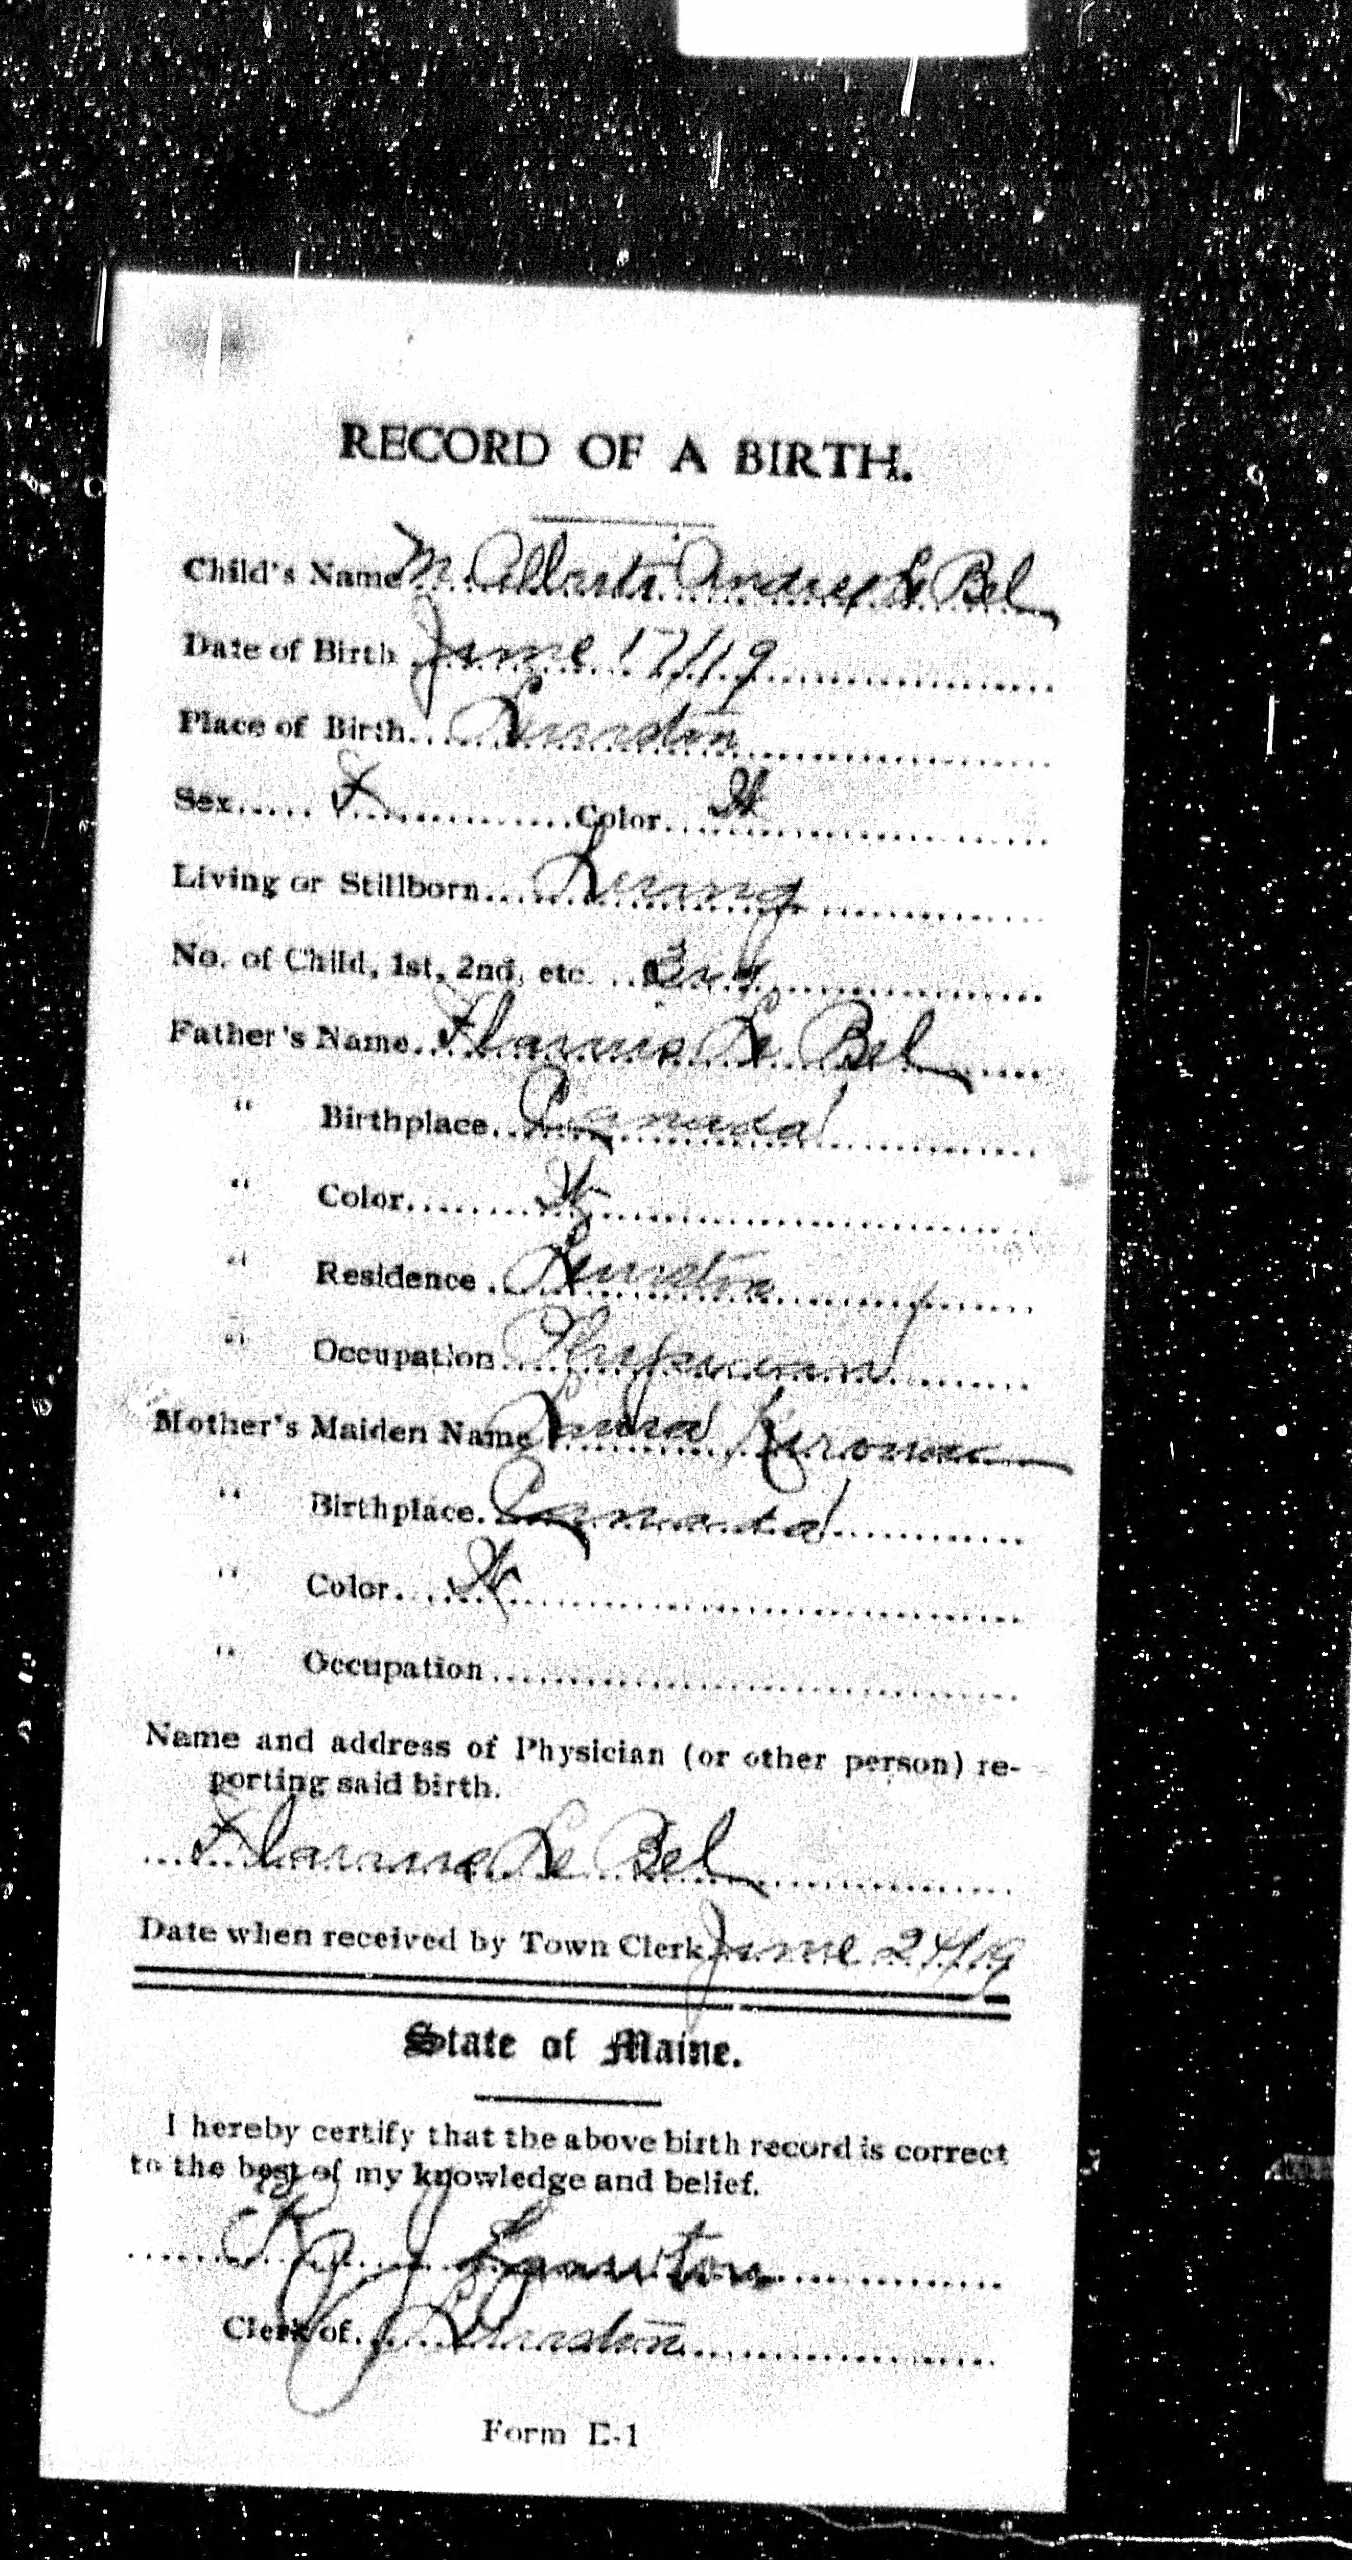 RECORD OF A BIRTH.
Child's Name M. Alberta Andrey Le Bel
Date of Birth June 17/19
Place of Birth Lewiston
Sex F Color W
Living or Stillborn Living
No. of Child, 1st, 2nd, etc. 3rd
Father's Name Le Bel
" Birthplace Canada
" Color W
" Residence Lewiston
" Occupation Physician
Mother's Maiden Name
" Birthplace Canada
" Color W
" Occupation
Name and address of Physician (or other person) re-
porting said birth.
Le Bel
Date when received by Town Clerk June 24/19
State of Maine.
I hereby certify that the above birth record is correct
to the best of my knowledge and belief.
Clerk of Lewiston
Form E-1